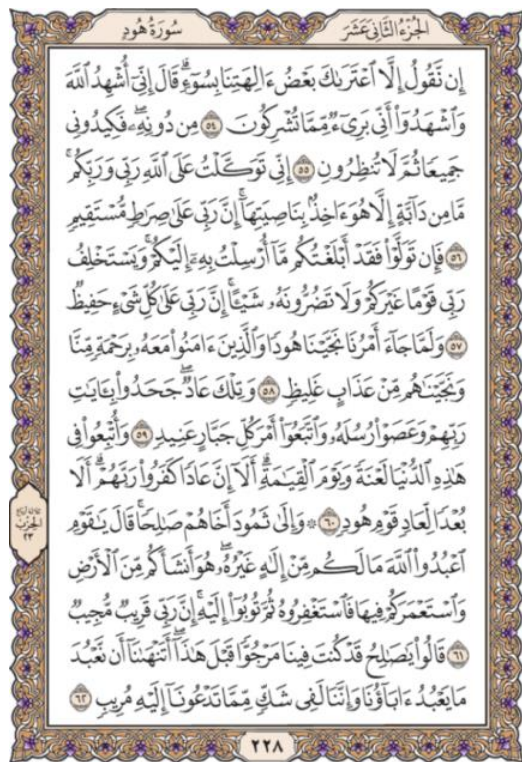 الجُزْءُ الثَّانِي عَشَرَ
سُورَةُ هُودٍ
إِن نَّقُولُ إِلَّا ٱعْتَرَىٰكَ بَعْضُ ءَالِهَتِنَا بِسُوٓءٖۗ قَالَ إِنِّيٓ أُشْهِدُ ٱللَّهَ
وَٱشْهَدُوٓاْ أَنِّي بَرِيٓءٞ مِّمَّا تُشْرِكُونَ ٥٤ مِن دُونِهِۦۖ فَكِيدُونِي
جَمِيعٗا ثُمَّ لَا تُنظِرُونِ ٥٥ إِنِّي تَوَكَّلْتُ عَلَى ٱللَّهِ رَبِّي وَرَبِّكُمۚ
مَّا مِن دَآبَّةٍ إِلَّا هُوَ ءَاخِذُۢ بِنَاصِيَتِهَآۚ إِنَّ رَبِّي عَلَىٰ صِرَٰطٖ مُّسْتَقِيمٖ
٥٦ فَإِن تَوَلَّوْاْ فَقَدْ أَبْلَغْتُكُم مَّآ أُرْسِلْتُ بِهِۦٓ إِلَيْكُمْۚ وَيَسْتَخْلِفُ
رَبِّي قَوْمًا غَيْرَكُمْ وَلَا تَضُرُّونَهُۥ شَيْـًٔاۚ إِنَّ رَبِّي عَلَىٰ كُلِّ شَيْءٍ حَفِيظٞ
٥٧ وَلَمَّا جَآءَ أَمْرُنَا نَجَّيْنَا هُودٗا وَٱلَّذِينَ ءَامَنُواْ مَعَهُۥ بِرَحْمَةٖ مِّنَّا
وَنَجَّيْنَٰهُم مِّنْ عَذَابٍ غَلِيظٖ ٥٨ وَتِلْكَ عَادٞۖ جَحَدُواْ بِـَٔايَٰتِ
رَبِّهِمْ وَعَصَوْاْ رُسُلَهُۥ وَٱتَّبَعُوٓاْ أَمْرَ كُلِّ جَبَّارٍ عَنِيدٖ ٥٩ وَأُتْبِعُواْ فِي
هَٰذِهِ ٱلدُّنْيَا لَعْنَةٗ وَيَوْمَ ٱلْقِيَٰمَةِۗ أَلَآ إِنَّ عَادٗا كَفَرُواْ رَبَّهُمْۗ أَلَا
بُعْدٗا لِّعَادٖ قَوْمِ هُودٖ ٦٠ ۞ وَإِلَىٰ ثَمُودَ أَخَاهُمْ صَٰلِحٗاۚ قَالَ يَٰقَوْمِ
ٱعْبُدُواْ ٱللَّهَ مَا لَكُم مِّنْ إِلَٰهٍ غَيْرُهُۥۖ هُوَ أَنشَأَكُم مِّنَ ٱلْأَرْضِ
وَٱسْتَعْمَرَكُمْ فِيهَا فَٱسْتَغْفِرُوهُ ثُمَّ تُوبُوٓاْ إِلَيْهِۚ إِنَّ رَبِّي قَرِيبٞ مُّجِيبٞ
٦١ قَالُواْ يَٰصَٰلِحُ قَدْ كُنتَ فِينَا مَرْجُوّٗا قَبْلَ هَٰذَآۖ أَتَنْهَىٰنَآ أَن نَّعْبُدَ
مَا يَعْبُدُ ءَابَآؤُنَا وَإِنَّنَا لَفِي شَكّٖ مِّمَّا تَدْعُونَآ إِلَيْهِ مُرِيبٖ ٦٢
الحِزْب
٢٣
٢٢٨